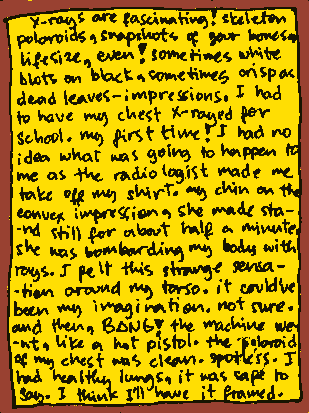 X-rays are fascinating! skeleton
poloroids, snapshots of your bones,
lifesize, even! sometimes white
blots on black, sometimes crisp as
dead leaves-impressions. I had
to have my chest X-rayed for
school. my first time! I had no
idea what was going to happen to
me as the radiologist made me
take off my shirt. my chin on the
convex impression, she made sta-
-nd still for about half a minute,
she was bombarding my body with
rays. I felt this strange sensa-
-tion around my torso. it could've
been my imagination. not sure.
and then, BANG! the machine we-
-nt, like a hot pistol. the poloroid
of my chest was clean. spotless. I
had healthy lungs, it was safe to
say. I think I'll have it framed.